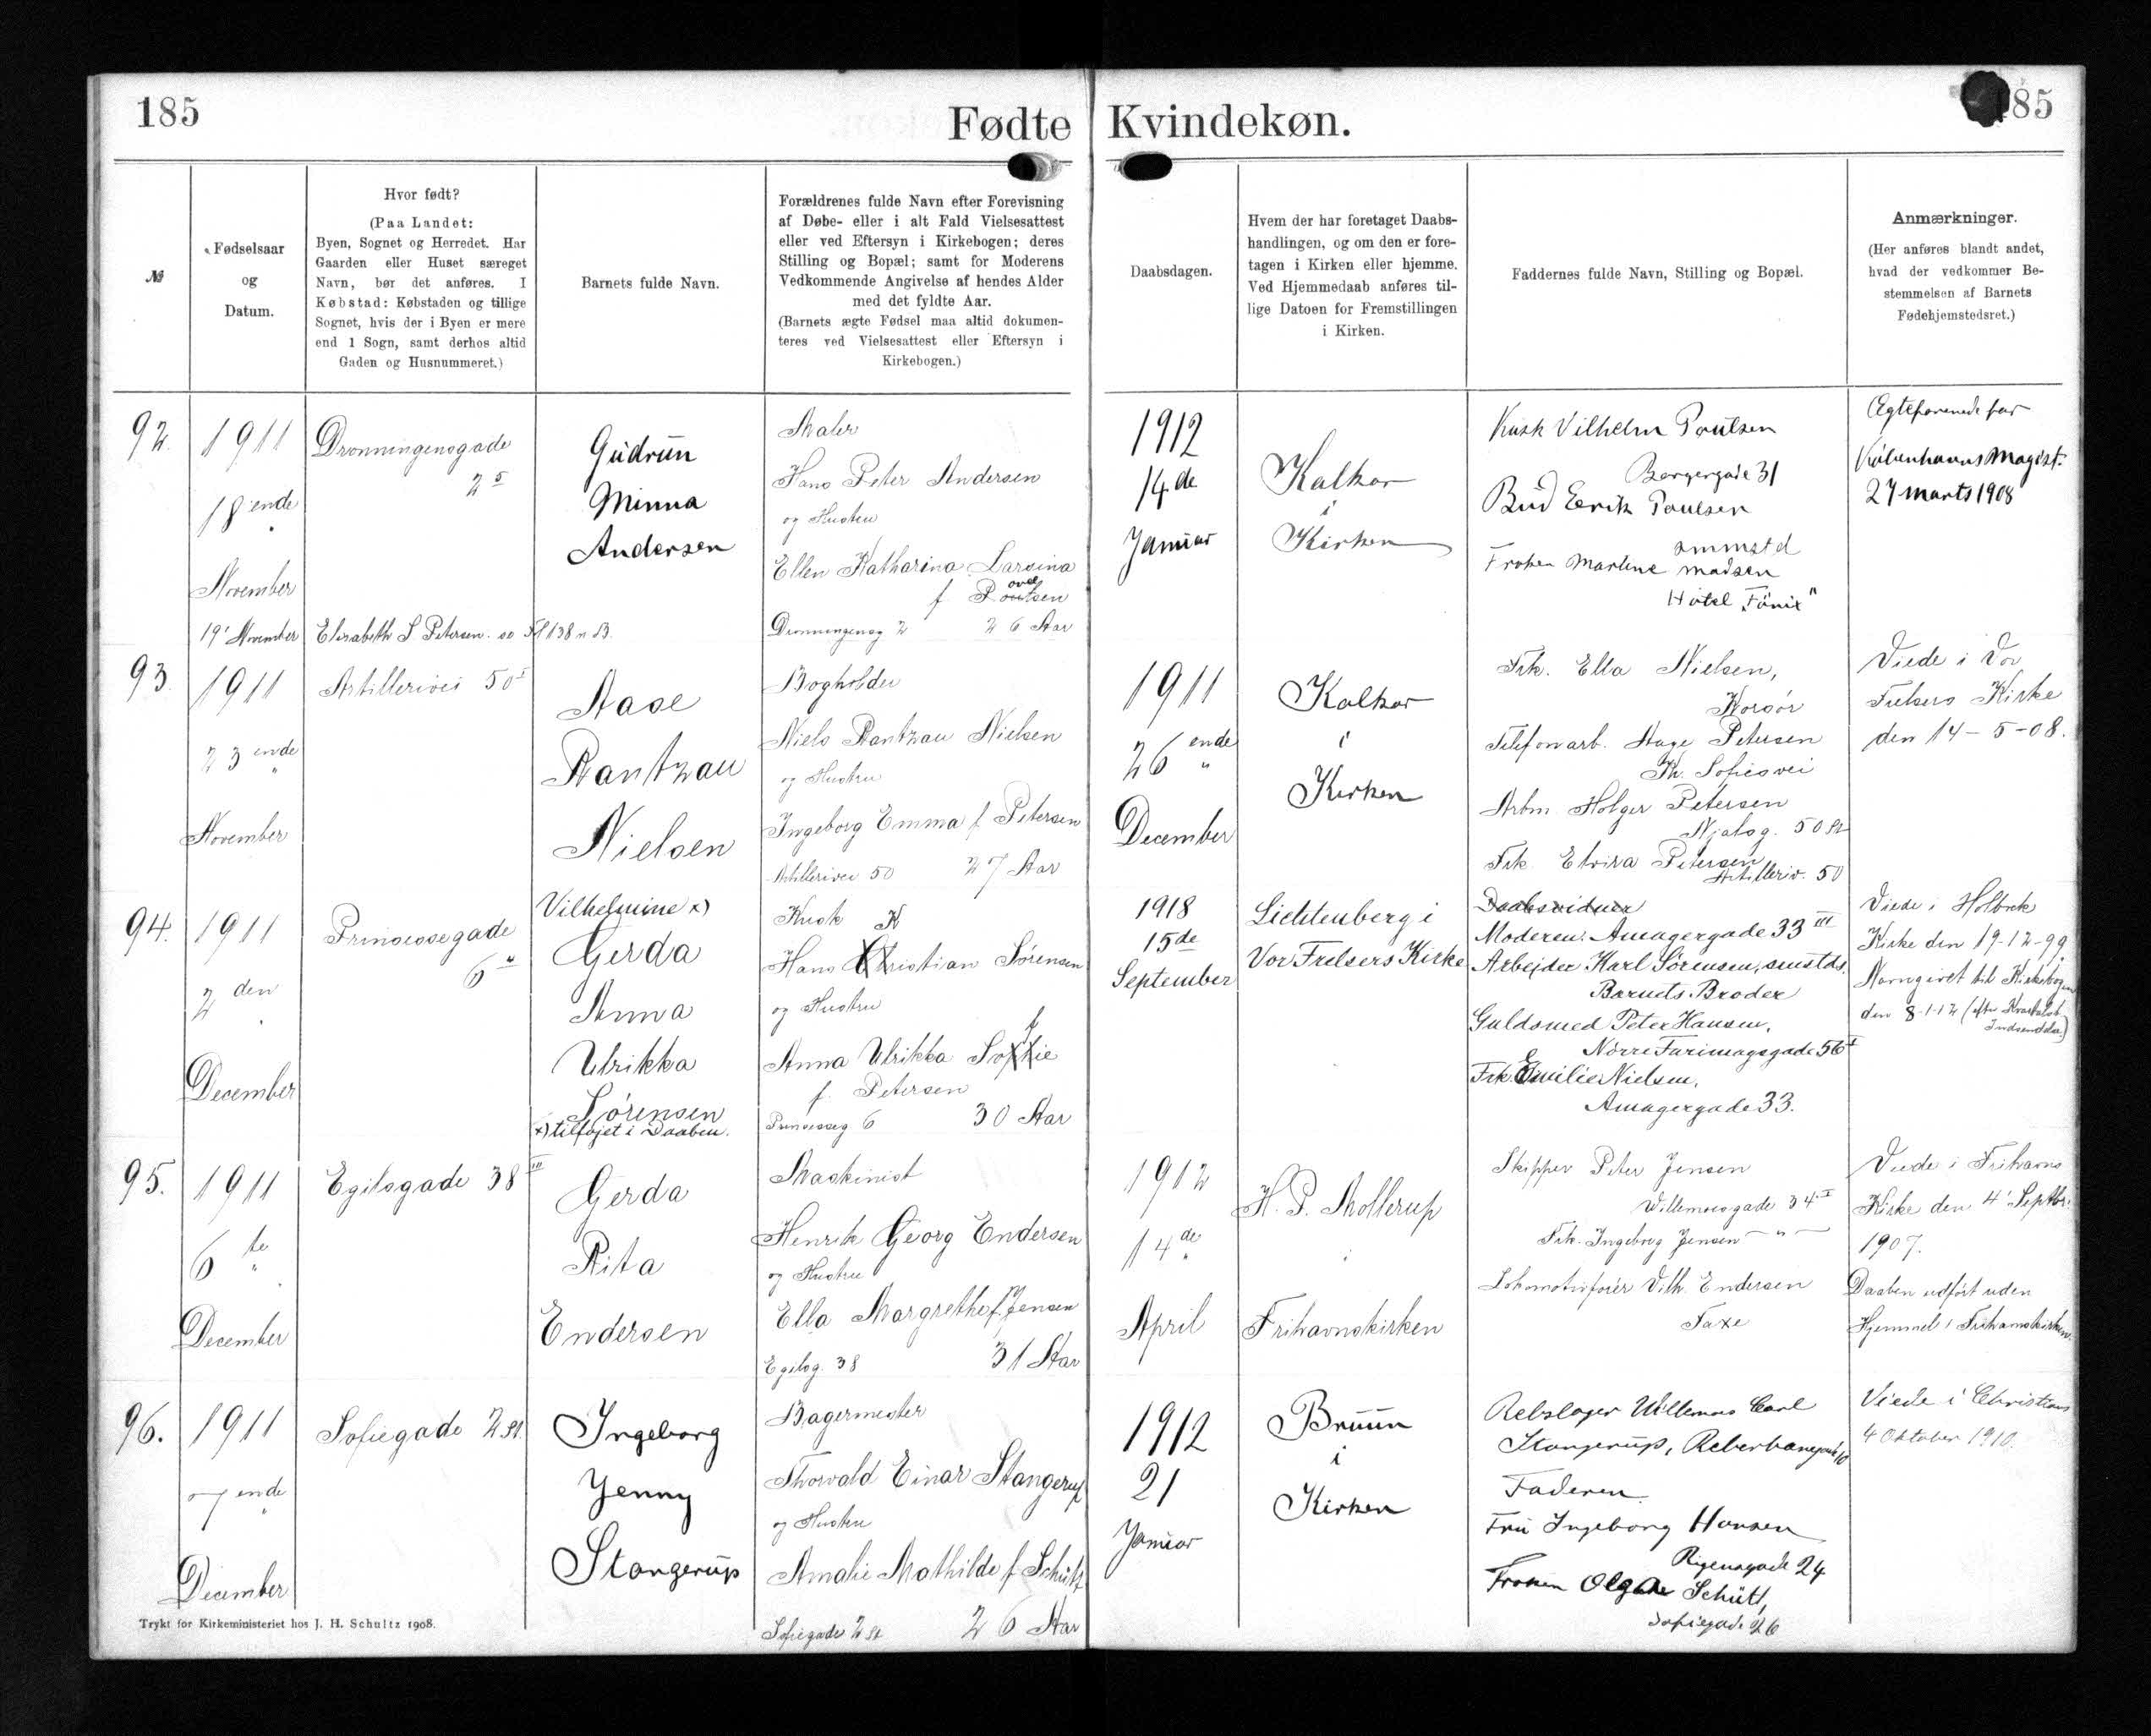 185
Fødte
Kvindekøn.
85
№
Fødselsaar
og
Datum.
Hvor født?
(Paa Landet:
Byen, Sognet og Herredet. Har
Gaarden eller Huset særeget
Navn, bør det anføres. I
Købstad: Købstaden og tillige
Sognet, hvis der i Byen er mere
end 1 Sogn, samt derhos altid
Gaden og Husnummeret.)
Barnets fulde Navn.
Forældrenes fulde Navn efter Forevisning
af Døbe- eller i alt Fald Vielsesattest
eller ved Eftersyn i Kirkebogen; deres
Stilling og Bopæl; samt for Moderens
Vedkommende Angivelse af hendes Alder
med det fyldte Aar.
(Barnets ægte Fødsel maa altid dokumen-
teres ved Vielsesattest eller Eftersyn i
Kirkebogen.)
Daabsdagen.
Hvem der har foretaget Daabs-
handlingen, og om den er fore-
tagen i Kirken eller hjemme.
Ved Hjemmedaab anføres til-
lige Datoen for Fremstillingen
i Kirken.
Faddernes fulde Navn, Stilling og Bopæl.
Anmærkninger.
(Her anføres blandt andet,
hvad der vedkommer Be-
stemmelsen af Barnets
Fødehjemstedsret.)
92.
1911
18 ende
November
Dronningensgade
2
Gudrun
Minna
Andersen
Maler
Hans Peter Andersen
og Hustru
Ellen Katharina Larsina
f Poulsen
Dronningensg 2 26 Aar
1912
14de
Januar
Kalkar
i
Kirken
Kusk Vilhelm Poulsen
Borgergade 31
Bud Eerik Poulsen
smmstd
Frøken Martine Madsen
Hotel "Fönix"
Ægteforenede for
Københavns Magist.
27 Marts 1908
19' November Elisabeth S Petersen. se Fl 138 n 13.
93.
1911
23 ende
November
Artillerivei 50 I
Aase
Rantzau
Nielsen
Bogholder
Niels Rantzau Nielsen
og Hustru
Ingeborg Emma f Petersen
Artillerivei 50 27 Aar
1911
26 ende
December
Kalkar
i
Kirken
Frk. Ella Nielsen,
Korsør
Telefonarb. Aage Petersen
Kh. Sofiesvei
Arbm. Holger Petersen
Njalsg. 50 St
Frk. Elvira Petersen
Artilleriv. 50
Viede i Vor
Frelsers Kirke
den 14-5-08.
94.
1911
2 den
December
Prinsessegade
6
Vilhelmine x)
Gerda
Anna
Ulrikka
Sørensen
x) tilføjet i Daaben.
Kusk K
Hans Christian Sörensen
og Hustru
f
Anna Ulrikka Sophie
f. Petersen
Prinsesseg 6 30 Aar
1918
15de
September
Lichtenberg i
Vor Frelsers Kirke
Daabsvidner
Moderen: Amagergade 33 III
Arbejder Karl Sörensen, smstds.
Barnets Broder
Guldsmed Peter Hansen,
Nørre Farimagsgade 56 I
Frk. Emilie Nielsen,
Amagergade 33.
Viede i Holbæk
Kirke den 19-12-99
Navngivet til Kirkebogen
den 8-1-12 (efter
Indsendelse)
95.
1911
6 te
December
Egilsgade 38 III
Gerda
Rita
Endersen
Maskinist
Henrik Georg Endersen
og Hustru
Ella Margrethe f. Jensen
Egilsg. 38 31 Aar
1912
14 de
April
H. P. Mollerup
i
Frihavnskirken
Skipper Peter Jensen
Willemoesgade 34 I
Frk. Ingeborg Jensen — " —
Lokomotivfører Vilh. Endersen
Faxe
Viede i Frihavns
Kirke den 4' Septbr.
1907.
Daaben udført uden
Hjemmel i Frihavnskirken.
96.
1911
7 ende
December
Sofiegade 2 St.
Ingeborg
Jenny
Stangerup
Bagermester
Thorvald Einar Stangerup
og Hustru
Amalie Mathilde f Schütt
Sofiegade 2 St 26 Aar
1912
21
Januar
Bruun
i
Kirken
Rebslager Willemoes Carl
Stangerup, Reberbanegade 10
Faderen
Fru Ingeborg Hansen
Rigensgade 24
Frøken Olga Schütt,
Sofiegade 26
Viede i Christians
4 Oktober 1910.
Trykt for Kirkeministeriet hos J. H. Schultz 1908.